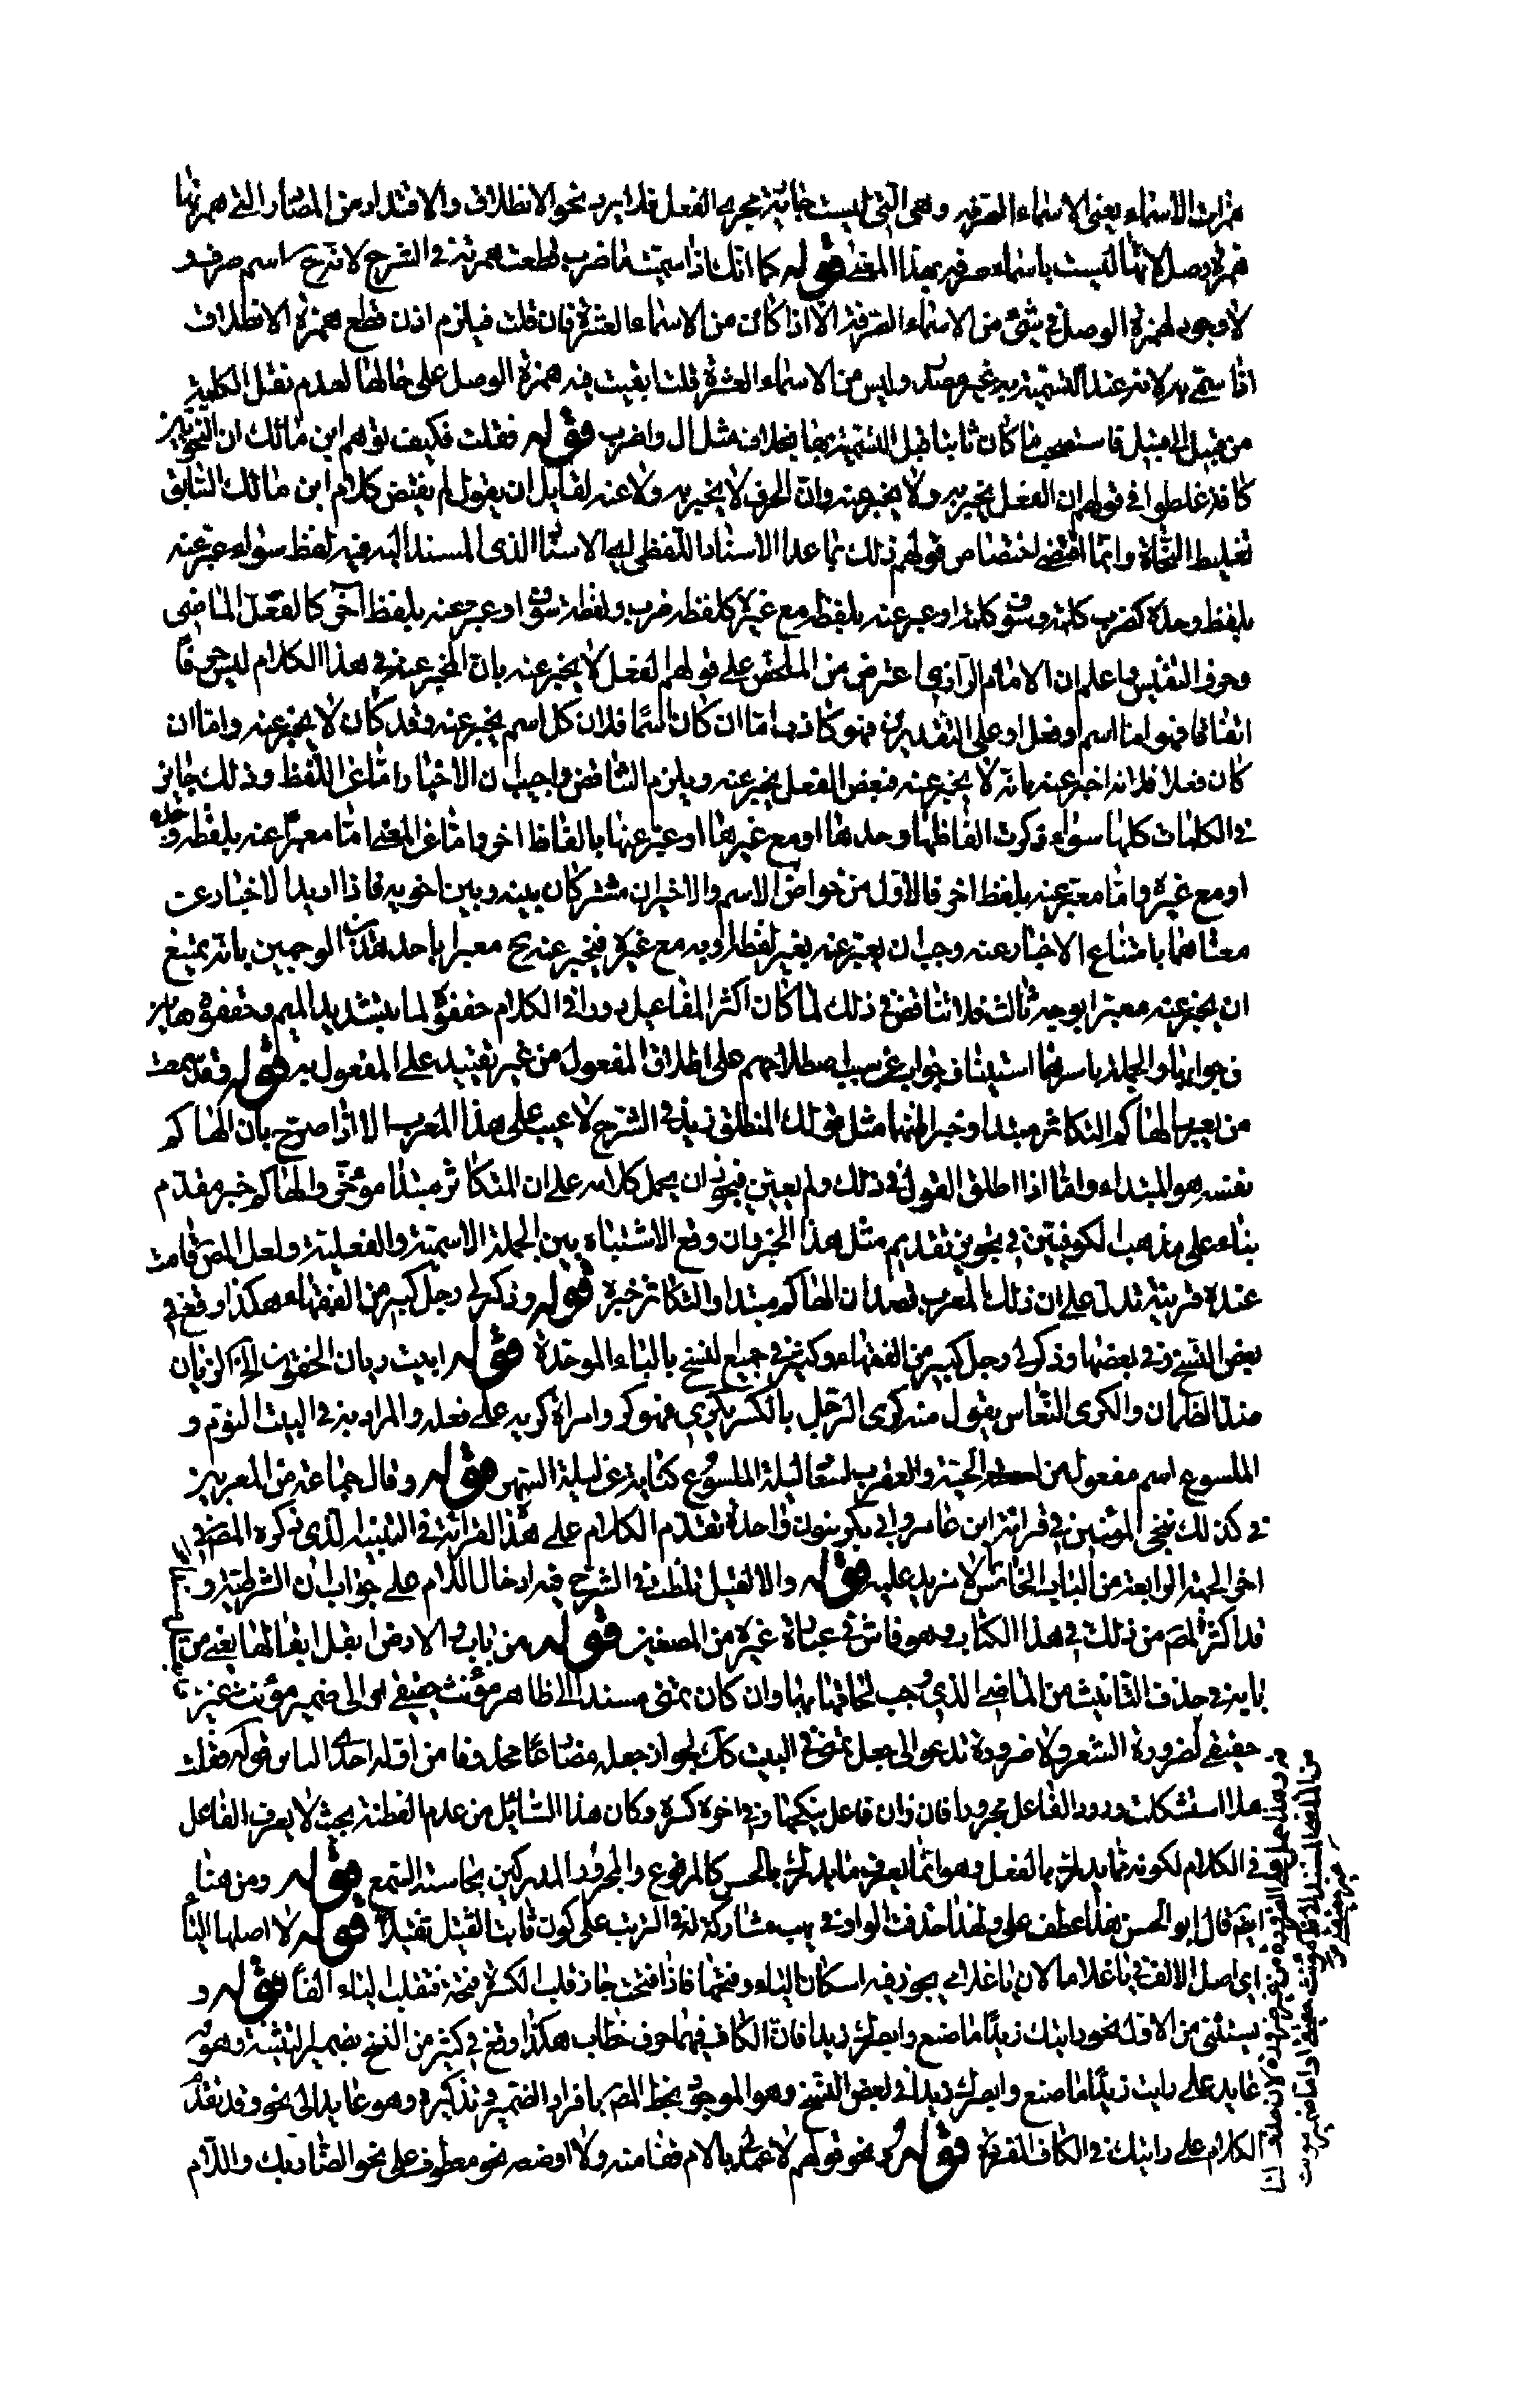 همزات الأسماء يعني الاسماء الصرفة وهي التي ليست جارية مجرى الفعل فلا يرد نحو الانطلاق والاقتدار من المصادر التي همزتها
همزة وصل لانها ليست باسماء صرفة بهذا المعنى قوله كما انك اذا سميت باضرب قطعت همزته في الشرح لانه اسم صرف و
لا وجود لهمزة الوصل في شيء من الاسماء الصرفة الا اذا كان من الاسماء العشرة فان قلت فيلزم اذن قطع همزة الانطلاق
اذا سمي به لانه عند التسمية به غير مصدر وليس من الاسماء العشرة قلت ابقيت فيه همزة الوصل على حالها لعدم نقل الكلمة
من قبيل الى قبيل فاستصحب ما كان ثابتا قبل التسمية بها بخلاف مثل ال واضرب قوله فقلت فكيف توهم ابن مالك ان النحويين
كافة غلطوا في قولهم ان الفعل يخبر به ولا يخبر عنه وان الحرف لا يخبر به ولا عنه لقايل ان يقول لم يقتض كلام ابن مالك السابق
تغليط النحاة وانما اقتضى اختصاص قولهم ذلك بما عدا الاسناد اللفظي اي الاسناد الذي المسند اليه فيه لفظ سواء عبر عنه
بلفظ وحده كضرب كلمة وسوف كلمة او عبر عنه بلفظه مع غيره كلفظة ضرب ولفظة سوف او عبر عنه بلفظ آخر كالفعل الماضي
وحرف التنفيس واعلم ان الامام الرازي اعترض في الملخص على قولهم الفعل لا يخبر عنه بان المخبر عنه في هذا الكلام ليس حرفا
اتفاقا فهو اما اسم او فعل وعلى التقديرين فهو كاذب اما ان كان اسما فلان كل اسم يخبر عنه وقد كان لا يخبر عنه واما ان
كان فعلا فلانه اخبر عنه بانه لا يخبر عنه فبعض الفعل يخبر عنه ويلزم التناقض واجيب ان الاخبار اما عن اللفظ وذلك جايز
في الكلمات كلها سواء ذكرت الفاظها وحدها او مع غيرها او عبر عنها بالفاظ اخر واما عن المعنى اما معبرا عنه بلفظه وحده
او مع غيره واما معبر عنه بلفظ اخر فالاول من خواص الاسم والاخيران مشتركان بينه وبين اخويه فاذا اريد الاخبار عن
معناهما بامتناع الاخبار عنه وجب ان يعبر عنه بغير لفظه او به مع غيره فيخبر عنه ح معبرا باحد هذين الوجهين بانه يمتنع
ان يخبر عنه معبرا بوجه ثالث فلا تناقض في ذلك لما كان اكثر المفاعيل دورا في الكلام خففوه لما بتشديد الميم وخففوه
في جوابها والجملة باسرها استيناف جواب عن سبب اصطلاحهم على اطلاق المفعول من غير تقييد على المفعول به قوله وقد سمعت
من يعرب الهاكم التكاثر مبتدا وخبرا مثل قولك المنطلق زيد في الشرح لا عيب على هذا المعرب الا اذا صرح بان الهاكم
نفسه هو المبتداء واما اذا اطلق القول في ذلك ولم يعين فيجوز ان يحمل كلامه على ان التكاثر مبتدا مؤخر والهاكم خبر مقدم
بناء على مذهب الكوفيين في تجويز تقديم مثل هذا الخبر وان وقع الاشتباه بين الجملة الاسمية والفعلية ولعل المص قامت
عنده قرينة تدل على ان ذلك المعرب قصد ان الهاكم مبتدا والتكاثر خبره قوله وذكر لي رجل كبير من الفقهاء هكذا وقع في
بعض النسخ وفي بعضها وذكر لي رجل كبير من الفقهاء وكبير في جميع النسخ بالباء الموحدة قوله ابيت ريان الجفون الخ الريان
ضد الظمآن والكرى النعاس يقول منه كرى الرجل بالكسر يكرى فهو كر وامراة كرية على فعلة والمراد به في البيت النوم و
الملسوع اسم مفعول من الحية والعقرب لسعا ليلة الملسوع كناية عن ليلة السهر قوله وقال جماعة من المعربين
في كذلك نجي المؤمنين في قراءة ابن عامر وابي بكر بنون واحدة تقدم الكلام على هذه القراءة في التنبيه الذي ذكره المص في
اخر الجهة الرابعة من الباب الخامس لا مزيد عليه قوله والا لقيل غلطت في الشرح فيه ادخال اللام على جواب ان الشرطية و
قد اكثر المص من ذلك في هذا الكتاب وهو فاش في عبارة غيره من المصنفين قوله من باب ولا ارض ابقل ابقالها يعني من
باب في حذف التانيث من الماضي الذي يجب لحاقها بها وان كان تمنى مسندا الى ظاهر مؤنث حقيقي لا الى ضمير مؤنث غير
حقيقي لضرورة الشعر ولا ضرورة تدعو الى جعل تمنى في البيت كذلك لجواز جعله مضارعا محذوفا من اوله احدى التائين قوله فقلت
هلا استشكلت ورود الفاعل مجرورا فان زان فاعل ينكحها وفي اخره كسرة وكان هذا السائل من عدم الفطنة بحيث لا يعرف الفاعل
في الكلام لكونه مما يدرك بالعقل وهو انما يعرف ما يدرك بالحس كالمرفوع والمجرور المدركين بحاسة السمع قوله ومن هنا
ايضا قال ابو الحسن هذا عطف على ولهذا حذفت الواو في يهب مشاركة له في الترتيب على كون ثابت القبل تقبلا قوله لا اصلها الياء
اي اصل الالف في يا غلاما لان يا غلامي يجوز فيه اسكان الياء وفتحها فاذا فتحت جاز قلب الكسرة فتحة فتقلب الياء الفا قوله و
يستثنى من الاول نحو رايتك زيدا ما صنع وابصرك زيدا فان الكاف فيهما حرف خطاب هكذا وقع في كثير من النسخ بضمير التثنية وهو
عايد على رايت زيدا ما صنع وابصرك زيدا في بعض النسخ وهو الموجود بخط المص بافراد الضمير وتذكيره وهو عايد الى نحو وقد تقدم
الكلام على رايتك في الكاف المفردة قوله ونحو قولهم لا عهد بالام قفا منه ولا اوضعه نحو معطوف على نحو الضاربك واللام